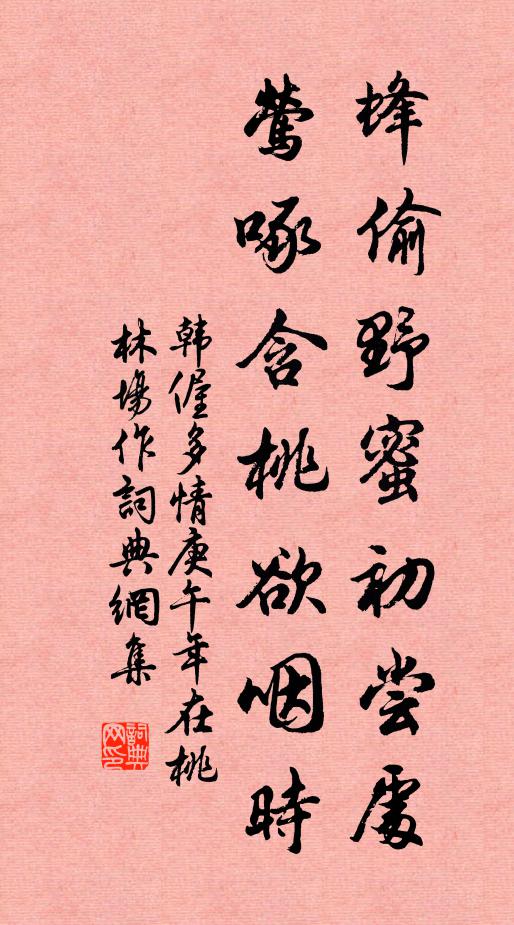 蜂偷野蜜初尝處
莺啄含桃欲咽時
韩偓多情庚午年在桃
林場作詞典網集
詞典
网印